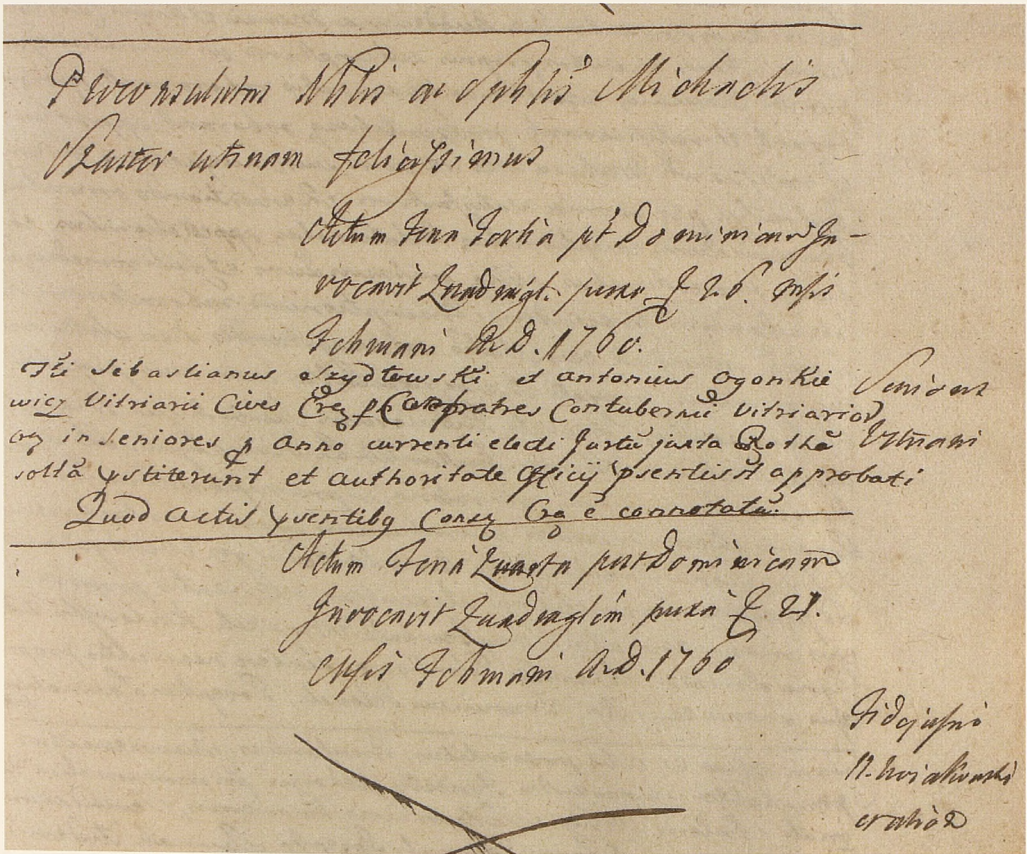 Proconsulatus Nblis ac Spblis Michaelis
Szaster utinam felicissimus
Actum Feria Tertia pt Dominicam In-
vocavit Quadragl. puxa f 26. msis
Febmarii A. D. 1760.
Sebastianus Szydłowski et antonius Ogonkie
wicz Vitriarii Cives Crac Confratres Contubernii Vitriario
Seniores
in Seniores p anno currenti electi juxta Rotha
Vitriarii
solta pstiterunt et authoritate Officij psentis st approbati
Quod actis psentibq Consq Cra e connotatu.
Actum Feria Quarta post Dominicam
Invocavit Quadraglem puxa f. 27.
Msis Febmarii A. D. 1760
Fidejussio